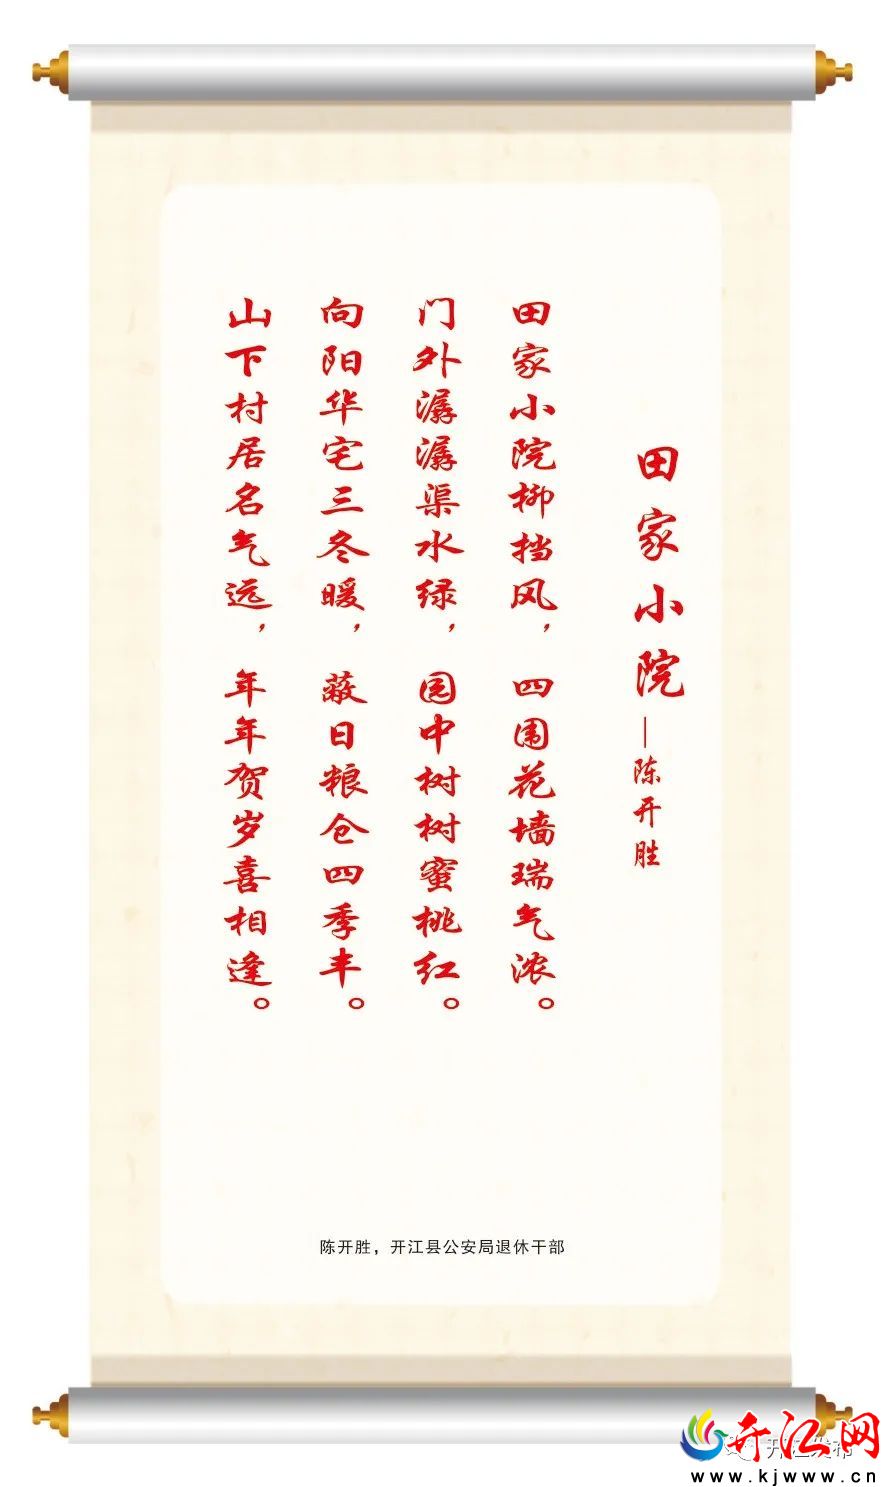 田家小院—陈开胜
田家小院柳挡风，四围花墙瑞气浓。
门外潺潺渠水绿，园中树树蜜桃红。
向阳华宅三冬暖，蔽日粮仓四季丰。
山下村居名气远，年年贺岁喜相逢。
陈开胜，开江县公安局退休干部
开江网
开江发布
www.kjwww.cn